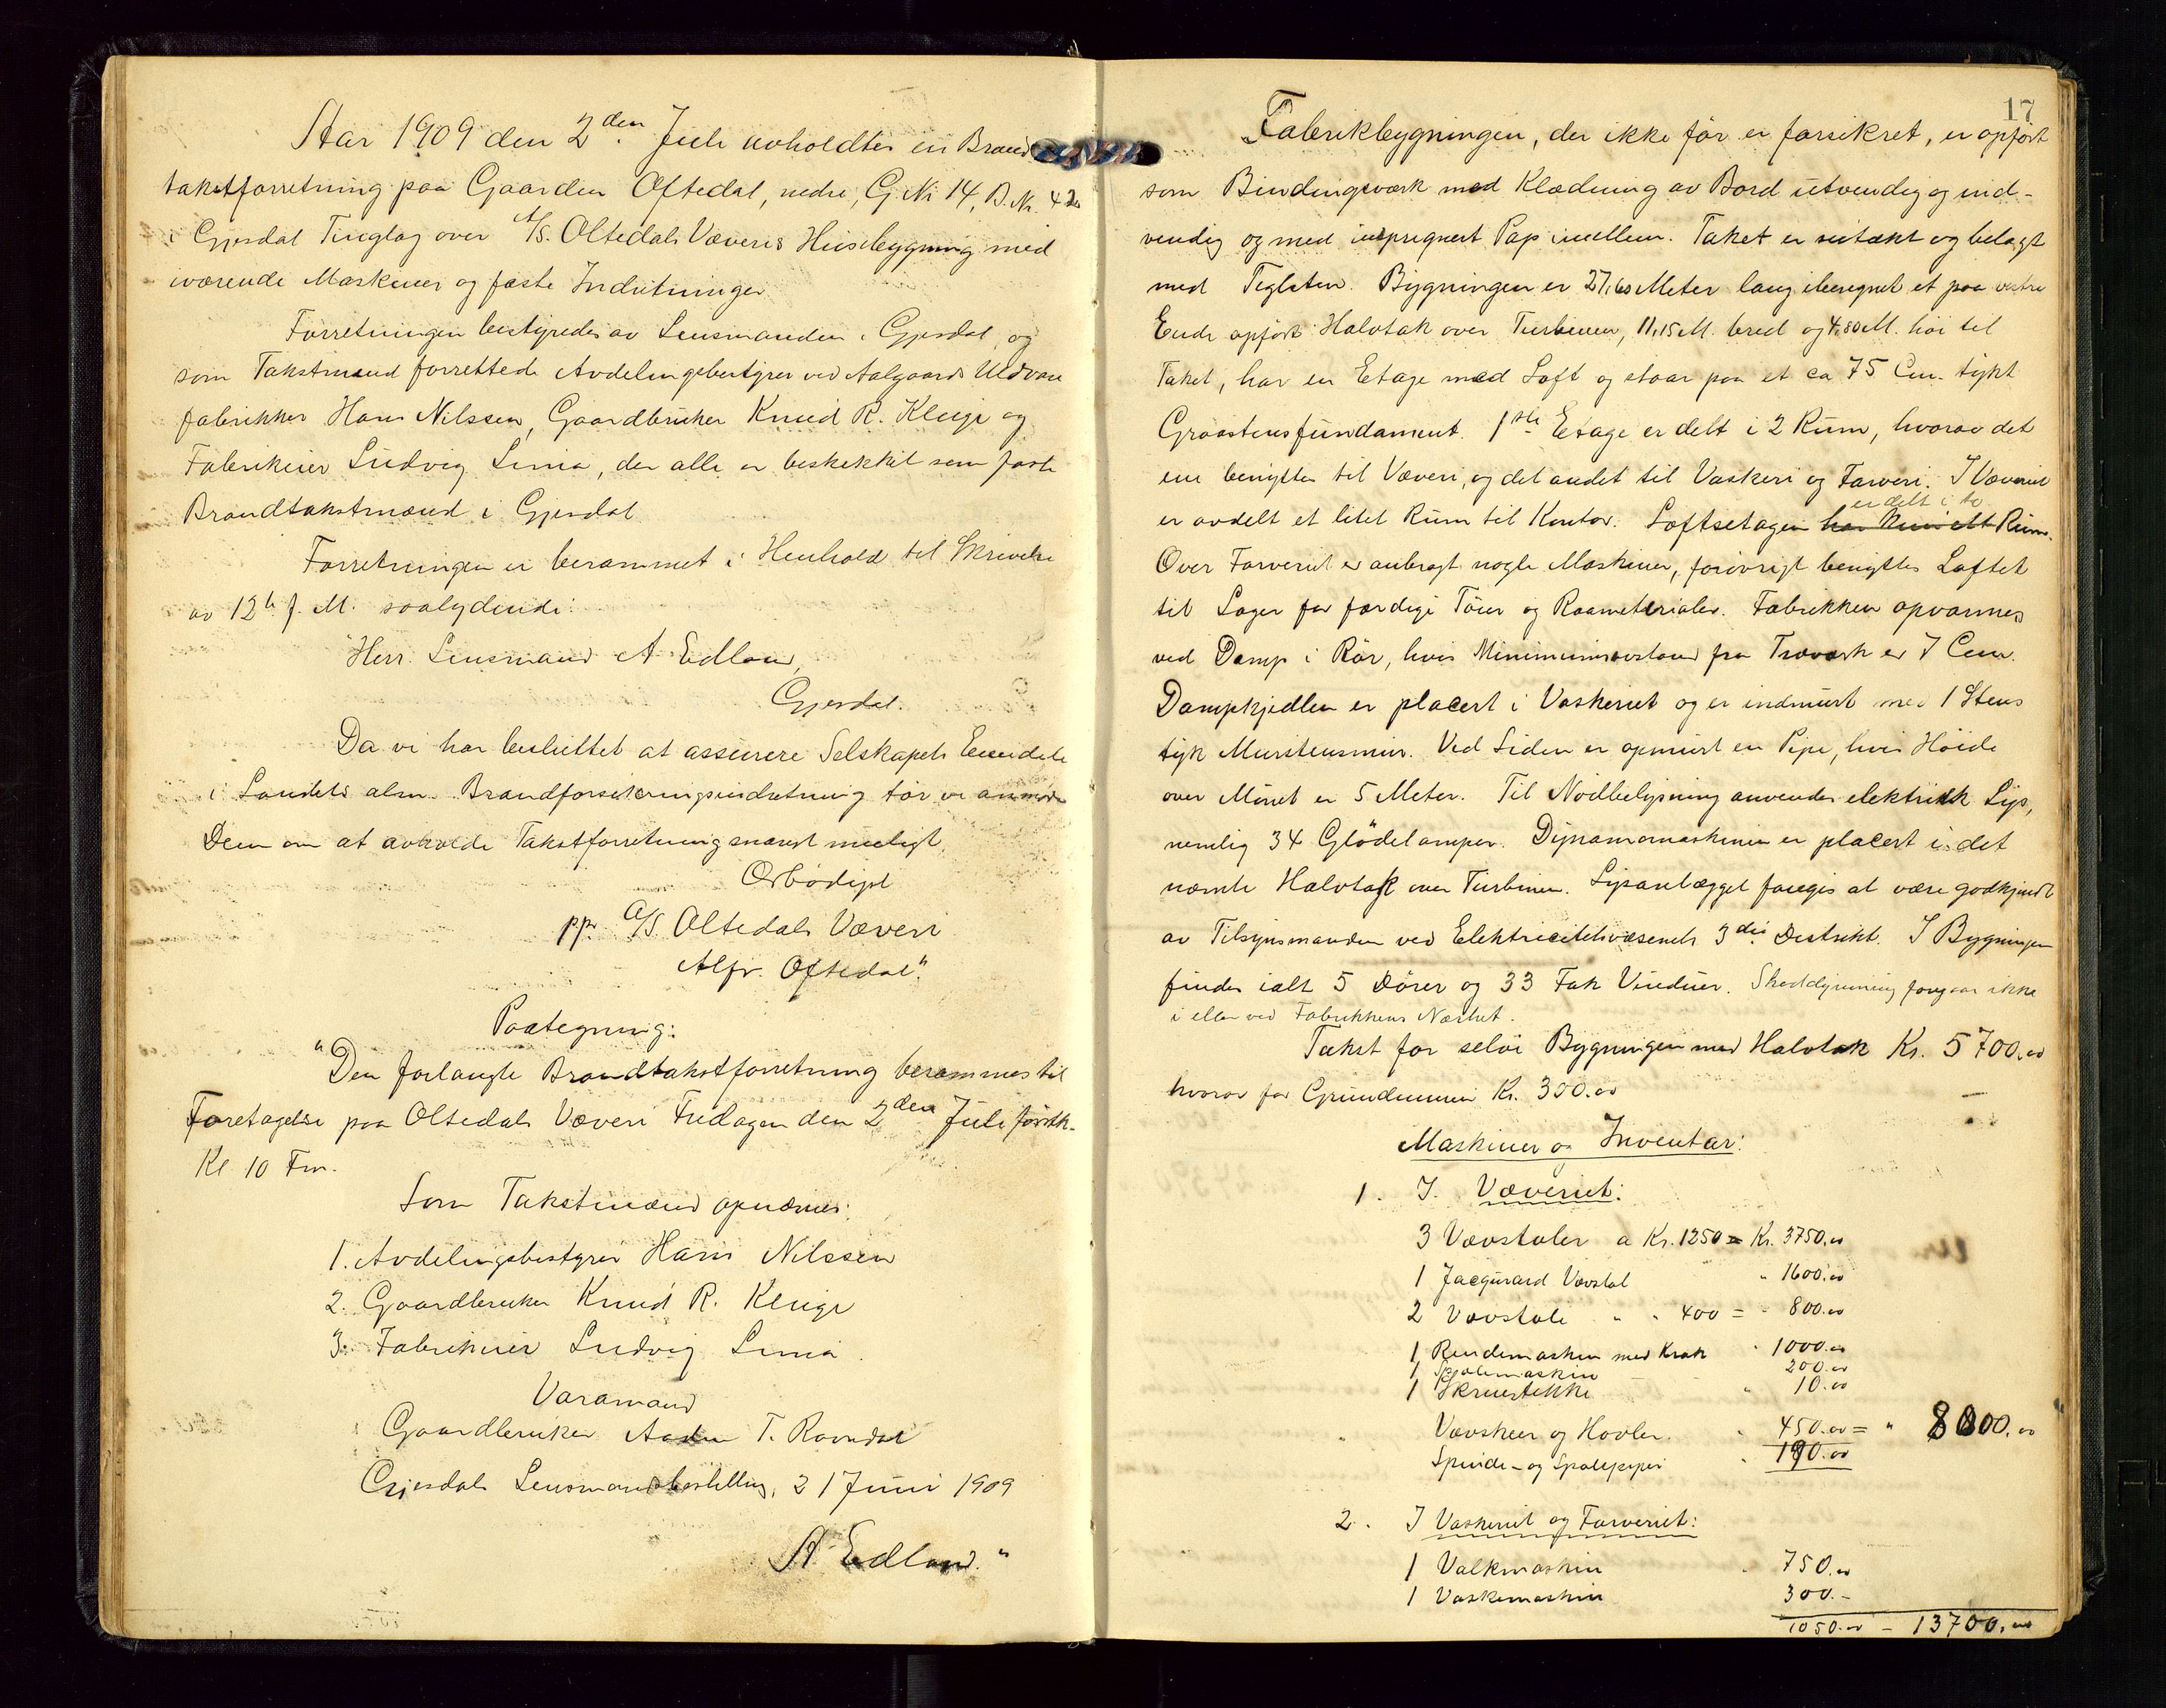 Aar 1909 den 2den Juli avholdtes en Brand
takstforretning paa Gaarden Oftedal, nedre, G. Nr 14, B. Nr. 4
i Gjesdal Tinglag over A/S. Oltedals Væveris Husebygning med
iværende Maskiner og faste Indretninger
Forretningen bestyredes av Lensmanden i Gjesdal, og
som Takstmænd forrettede Avdelingsbestyrer ved Aalgaards Uldvare
fabrikker Hans Nilssen, Gaardbruker Knud R. Kluge og
Fabrikeier Ludvig Lima, der alle er beskikket som faste
Brandtakstmænd i Gjesdal
Forretningen er berammet i Henhold til Skrivelse
av 12te f. M. saalydende:
"Herr. Lensmand A Edland,
Gjesdal.
Da vi har besluttet at assurere Selskapets Eiendele
i Landets alm. Brandforsikringsindretning tør vi anmode
Dem om at avholde Takstforretning snarest muligt,
Ærbødigst
pp. A/S Oltedals Væveri
Alfr. Oftedal".
Paategning:
"Den forlangte Brandtakstforretning berammes til
Foretagelse paa Oltedals Væveri Fredagen den 2den Juli førstk.
Kl 10 Fm.
Som Takstmænd opnævnes:
1. Avdelingsbestyrer Hans Nilssen
2. Gaardbruker Knud R. Kluge
3. Fabrikeier Ludvig Lima.
Varamand
Gaardbruker T. Ravndal
Gjesdals Lensmandsbestilling, 21 Juni 1909
A Edland."
17
Fabrikbygningen, der ikke før er forsikret, er opført
som Bindingsværk med Klædning av Bord utvendig og ind-
vendig og med imprignert Pap imellem. Taket er sutækt og belagt
med Teglsten. Bygningen er 27,60 Meter lang iberegnet et paa vestre
Ende opført Halvtak over Turbinen, 11,15 M. bred og 4,80 M. høi til
Taket, har en Etage med Loft og staar paa et ca 75 Cm. tykt
Graastensfundament. 1ste Etage er delt i 2 Rum, hvorav det
ene benyttes til Væveri, og det andet til Vaskeri og Farveri. I Væveriet
er avdelt et litet Rum til Kontor. Loftsetagen har kun ett er delt i to Rum.
Over Farveriet er anbragt nogle Maskiner, forøvrigt benyttes Loftet
til Lager for færdige Tøier og Raamaterialer. Fabrikken opvarmes
ved Damp i Rør, hvis Minimumsavstand fra Træværk er 7 Cm.
Dampkjedlen er placert i Vaskeriet og er indmurt med 1 Stens
tyk Murstensmur. Ved Siden er opmurt en Pipe, hvis Høide
over Mønet er 5 Meter. Til Nødbelysning anvendes elektrisk Lys,
nemlig 34 Glødelamper. Dynamomaskinen er placert i det
nævnte Halvtak over Turbinen. Lysanlægget foregis at være godkjendt
av Tilsynsmanden ved Elektricitetsvæsenets 3die Distrikt. I Bygningen
findes ialt 5 Dører og 33 Fak Vinduer. Skoddyrivning foregaar ikke
i eller ved Fabrikkens Nærhet.
Takst for selve Bygningen med Halvtak Kr. 5700.00
hvorav for Grundmuren Kr. 300.00
Maskiner og Inventar:
1. I. Væveriet:
3 Vævstoler a Kr. 1250 = Kr. 3750.00
1 Jacquard Vævstol " 1600.00
2 Vævstole " " 400 = " 800.00
1 Rendemaskin med Krak " 1000.00
1 Spolemaskin 200.00
1 Skruestikke " 10.00
Vævskeer og Hovler. " 450.00 = " 8000.00
Spinde- og Spolepiper " 190.00
2. I Vaskeriet og Farveriet:
1 Valkmaskin " 750.00
1 Vaskemaskin 300.-
1050.00 - 13700.00